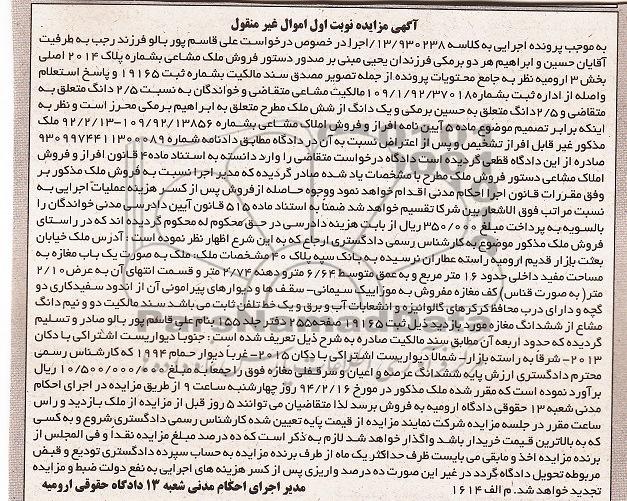 آگهی مزایده نوبت اول اموال غیر منقول
به موجب پرونده اجرایی به کلاسه ۱۳/۹۳۰۲۳۸/اجرا در خصوص درخواست علی قاسم پور بالو فرزند رجب به طرفیت
آقایان حسین و ابراهیم هر دو برمکی فرزندان یحیی مبنی بر صدور دستور فروش ملک مشاعی بشماره پلاک ۲۰۱۴ اصلی
بخش ۳ ارومیه نظر به جامع محتویات پرونده از جمله تصویر مصدق سند مالکیت بشماره ثبت ۱۹۱۶۵ و پاسخ استعلام
واصله از اداره ثبت بشماره ۱۰۹/۱/۹۲/۳۷۰۱۸ مالکیت مشاعی متقاضی و خواندگان به نسبت ۲/۵ دانگ متعلق به
متقاضی و ۲/۵ دانگ متعلق به حسین برمکی و یک دانگ از شش ملک مطرح متعلق به ابراهیم برمکی محرز است و نظر به
اینکه برابر تصمیم موضوع ماده ۵ آیین نامه افراز و فروش املاک مشاعی بشماره ۱۰۹/۹۲/۱۳۸۵۶-۹۲/۲/۱۳ ملک
مذکور غیر قابل افراز تشخیص و پس از اعتراض نسبت به آن در دادگاه مطابق دادنامه شماره ۹۳۰۹۹۷۴۴۱۱۳۰۰۰۸۹
صادره از این دادگاه قطعی گردیده است دادگاه درخواست متقاضی را وارد دانسته به استناد ماده ۴ قانون افراز و فروش
املاک مشاعی دستور فروش ملک مطرح با مشخصات یاد شده صادر گردیده که مدیر اجرا نسبت به فروش ملک مذکور بر
وفق مقررات قانون اجرا احکام مدنی اقدام خواهد نمود ووجوه حاصله از فروش پس از کسر هزینه عملیات اجرایی به
نسبت مراتب فوق الاشعار بین شرکا تقسیم خواهد شد ضمنا به استناد ماده ۵۱۵ قانون آیین دادرسی مدنی خواندگان را
بالسویه به پرداخت مبلغ ۳۵۰/۰۰۰ ریال از بابت هزینه دادرسی در حق محکوم له محکوم گردیده اند که در راستای
فروش ملک مذکور موضوع به کارشناس رسمی دادگستری ارجاع که به این شرع اظهار نظر نموده است: آدرس ملک خیابان
بعثت بازار قدیم ارومیه راسته عطاران نرسیده به بانک سپه پلاک ۴۰ مشخصات ملک: ملک به صورت یک باب مغازه به
مساحت مفید داخلی حدود ۱۶ متر مربع و به عمق متوسط ۶/۶۴ و دهنه ۲/۷۴ متر و قسمت انتهای آن به عرض ۲/۱۰
متر( به صورت قناس) کف مغازه مفروش به موزاییک سیمانی- سقف ها و دیوارهای پیرامونی آن از اندود سفیدکاری دو
گچه و دارای درب محافظ کرکرهای گالوانیزه و انشعابات آب و برق و یک خط تلفن ثابت می باشد سند مالکیت دو و نیم دانگ
مشاع از ششدانگ مغازه مورد بازدید ذیل ثبت ۱۹۱۶۵ صفحه ۲۵۵ دفتر جلد ۱۵۵ بنام علی قاسم پور بالو صادر و تسلیم
گردیده که حدود اربعه آن مطابق سند مالکیت صادره به شرح ذیل تعریف شده است: جنوبا دیواریست اشتراکی با دکان
۲۰۱۳- شرقا به راسته بازار- شمالا دیواریست اشتراکی با دکان ۲۰۱۵- غربا دیوار حمام ۱۹۹۴ که کارشناس رسمی
محترم دادگستری ارزش پایه ششدانگ عرصه و اعیان و سرقفلی مغازه فوق را جمعا به مبلغ ۱۰/۵۰۰/۰۰۰/۰۰۰ ریال
برآورد نموده است که مقرر شده ملک مذکور در مورخ ۹۴/۲/۱۶ روز چهارشنبه ساعت ۹ از طریق مزایده در اجرای احکام
مدنی شعبه ۱۳ حقوقی دادگاه ارومیه به فروش برسد لذا متقاضیان می توانند ۵ روز قبل از مزایده از ملک بازدید و راس
ساعت مقرر در جلسه مزایده شرکت نمایند مزایده از قیمت پایه تعیین شده کارشناس رسمی دادگستری شروع و به کسی
که به بالاترین قیمت خریدار باشد واگذار خواهد شد. لازم به ذکر است که ده درصد مبلغ مزایده نقدا و فی المجلس از
برنده مزایده اخذ و مابقی می بایست ظرف حداکثر یک ماه از طرف برنده مزایده به حساب سپرده دادگستری تودیع و قبض
مربوطه تحویل دادگاه گردد در غیر این صورت ده درصد واریزی پس از کسر هزینه های اجرایی به نفع دولت ضبط و مزایده
تجدید خواهد شد. م الف ۱۶۱۴ مدیر اجرای احکام مدنی شعبه ۱۳ دادگاه حقوقی ارومیه